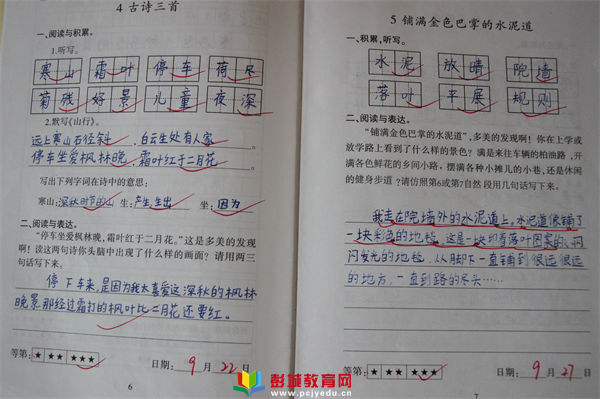 4 古诗三首
一、阅读与积累。
1.听写。
寒山 霜叶 停车 荷尽
菊残 好景 儿童 夜深
2.默写《山行》。
远上寒山石径斜，白云生处有人家。
停车坐爱枫林晚，霜叶红于二月花。
写出下列字词在诗中的意思：
寒山：深秋时节的山 生：产生，生出 坐：因为
二、阅读与表达。
“停车坐爱枫林晚，霜叶红于二月花。”这是多美的发现
啊！读这两句诗你头脑中出现了什么样的画面？请用两三
句话写下来。
停下车来，是因为我太喜爱这深秋的枫林
晚景，那经过霜打的枫叶比二月花还要红。
等第：★ ★★ ★★★ 日期：9月22日
6
5 铺满金色巴掌的水泥道
一、积累，听写。
水泥 放晴 院墙
落叶 平展 规则
二、阅读与表达。
“铺满金色巴掌的水泥道”，多美的发现啊！你在上学或
放学路上看到了什么样的景色？满是来往车辆的柏油路，开
满各色鲜花的乡间小路，摆满各种小摊儿的小巷，还是休闲
的健身步道？请仿照第6或第7自然段用几句话写下来。
我走在院墙外的水泥道上。水泥道像铺了
一块彩色的地毯。这是一块印着落叶图案的、闪
闪发光的地毯，从脚下一直铺到很远很远
的地方，一直到路的尽头……
等第：★ ★★ ★★★ 日期：9月27日
7
彭城教育网
www.pcjyedu.cn